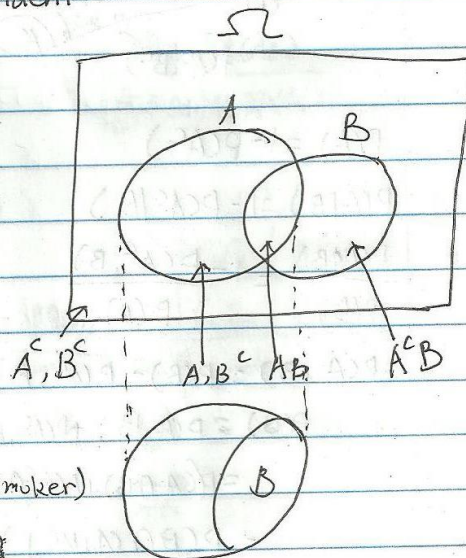 Ω
A
B
Aᶜ, Bᶜ
A, Bᶜ
AB
AᶜB
B
moker)